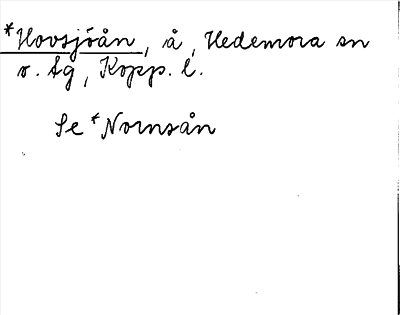 *Hovsjöån, å, Hedemora sn
o. tg, Kopp. l.
Se *Nornsån